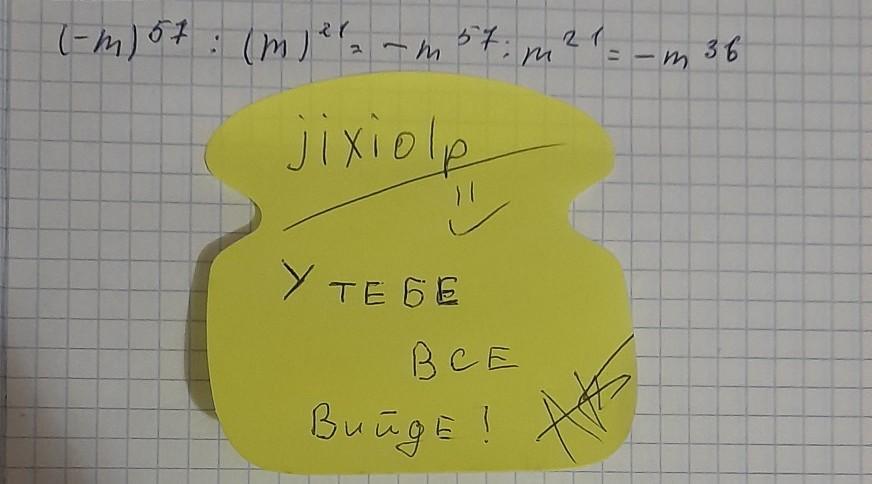 (-m)⁵⁷ : (m)²¹ = -m⁵⁷ : m²¹ = -m³⁶
jixiolp
У ТЕБЕ
ВСЕ
ВийдЕ!